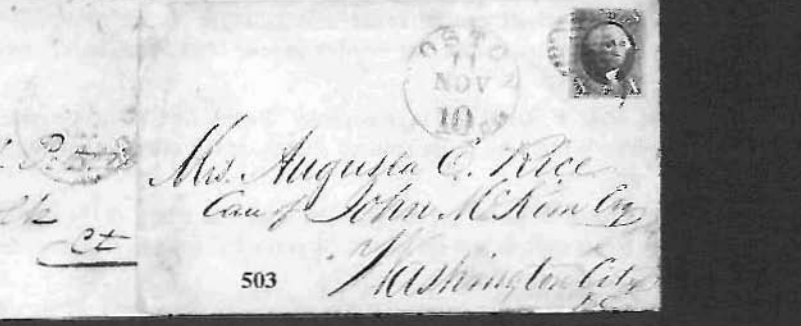 BOSTO
11
NOV
10
Mrs. Augusta E. Rice
Care of John McKim Esq
Washington City
503
Ct